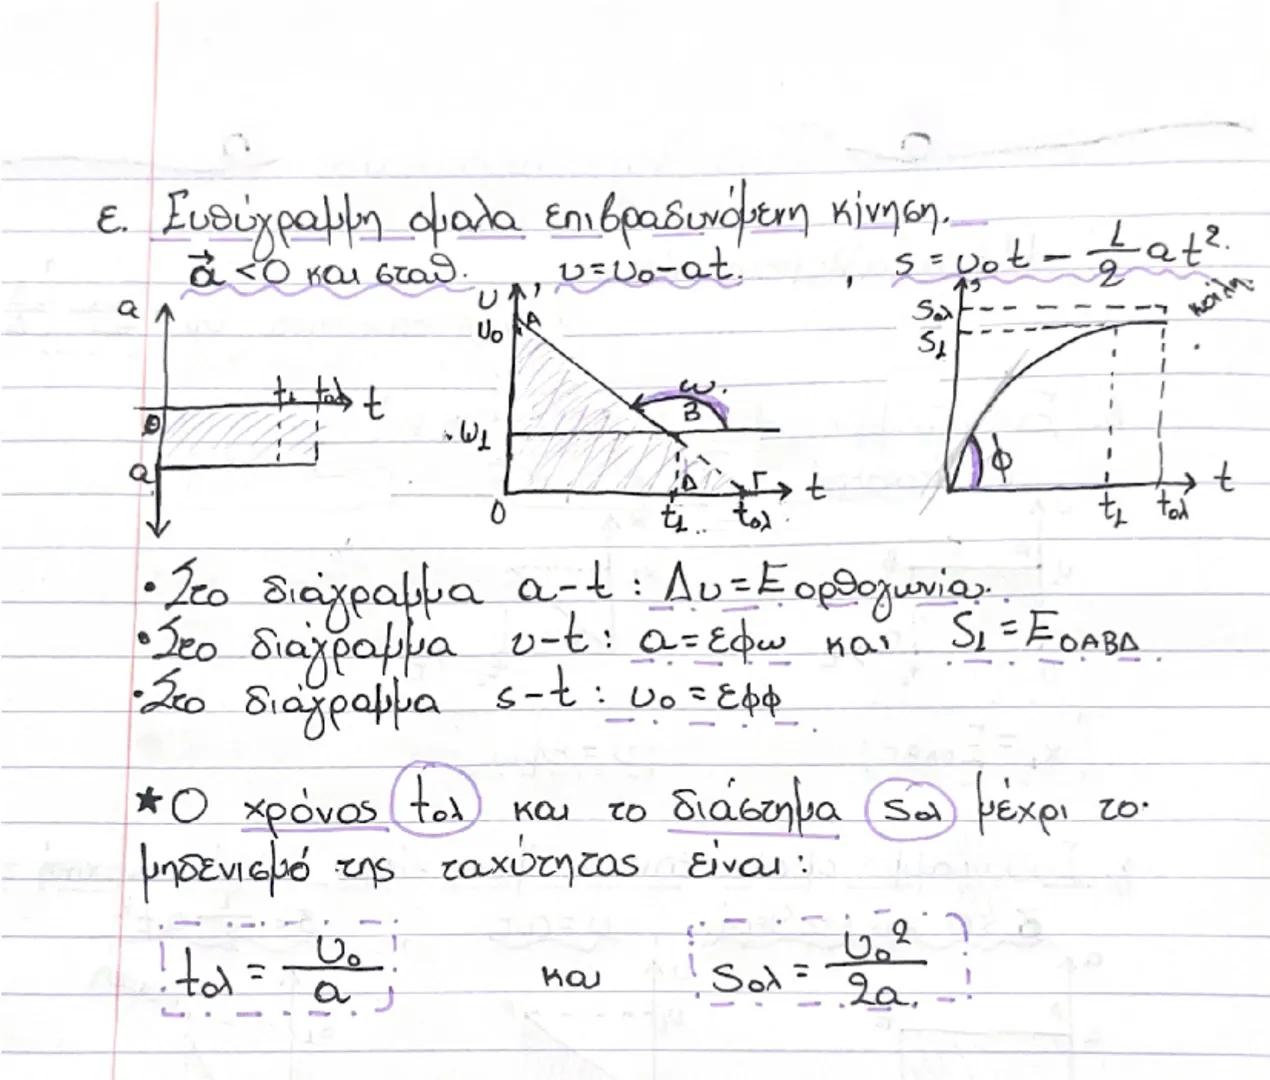 ε. Ευθύγραμμη ομαλα επιβραδυνόμενη κίνηση.
a⃗ <0 και σταθ. , υ=υ₀-at. , s = υ₀t - 1/2 at².
a
t₁ tολ t
0
a
υ
υ₀ A
ω.
B
υ₁
Δ Γ t
0 t₁ tολ
s
Sολ
S₁
κοίλη
φ
t
t₁ tολ
• Στο διάγραμμα a-t : Δυ=Ε ορθογωνία.
• Στο διάγραμμα υ-t : a=εφω και S₁ = ΕΟΑΒΔ
• Στο διάγραμμα s-t : υ₀ = εφφ
★ Ο χρόνος tολ και το διάστημα Sολ μέχρι το
μηδενισμό της ταχύτητας είναι:
tολ = υ₀/a και Sολ = υ₀²/2a.